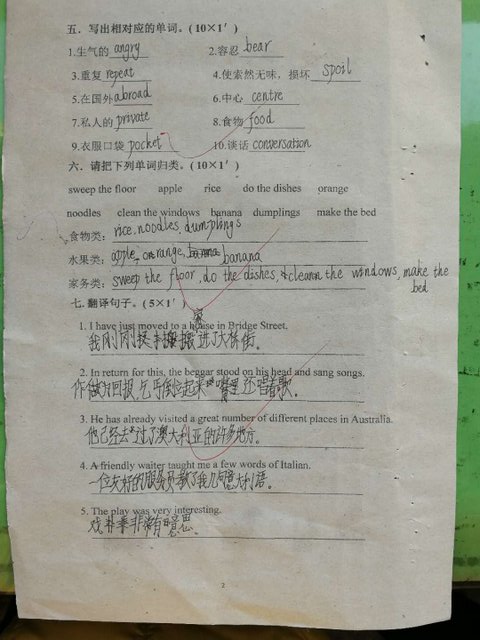 五．写出相对应的单词。(10×1′)
1.生气的 angry 2.容忍 bear
3.重复 repeat 4.使索然无味，损坏 spoil
5.在国外 abroad 6.中心 centre
7.私人的 private 8.食物 food
9.衣服口袋 pocket 10.谈话 conversation
六．请把下列单词归类。(10×1′)
sweep the floor apple rice do the dishes orange
noodles clean the windows banana dumplings make the bed
食物类： rice, noodles, dumplings
水果类： apple, orange, banana
家务类： sweep the floor, do the dishes, clean the windows, make the bed
七．翻译句子。(5×1′)
1. I have just moved to a house in Bridge Street.
我刚刚搬进了大桥街。
2. In return for this, the beggar stood on his head and sang songs.
作为回报，乞丐倒立起来嘴里还唱着歌。
3. He has already visited a great number of different places in Australia.
他已经去过了澳大利亚的许多地方。
4. A friendly waiter taught me a few words of Italian.
一位友好的服务员教了我几句意大利语。
5. The play was very interesting.
戏非常有意思。
2